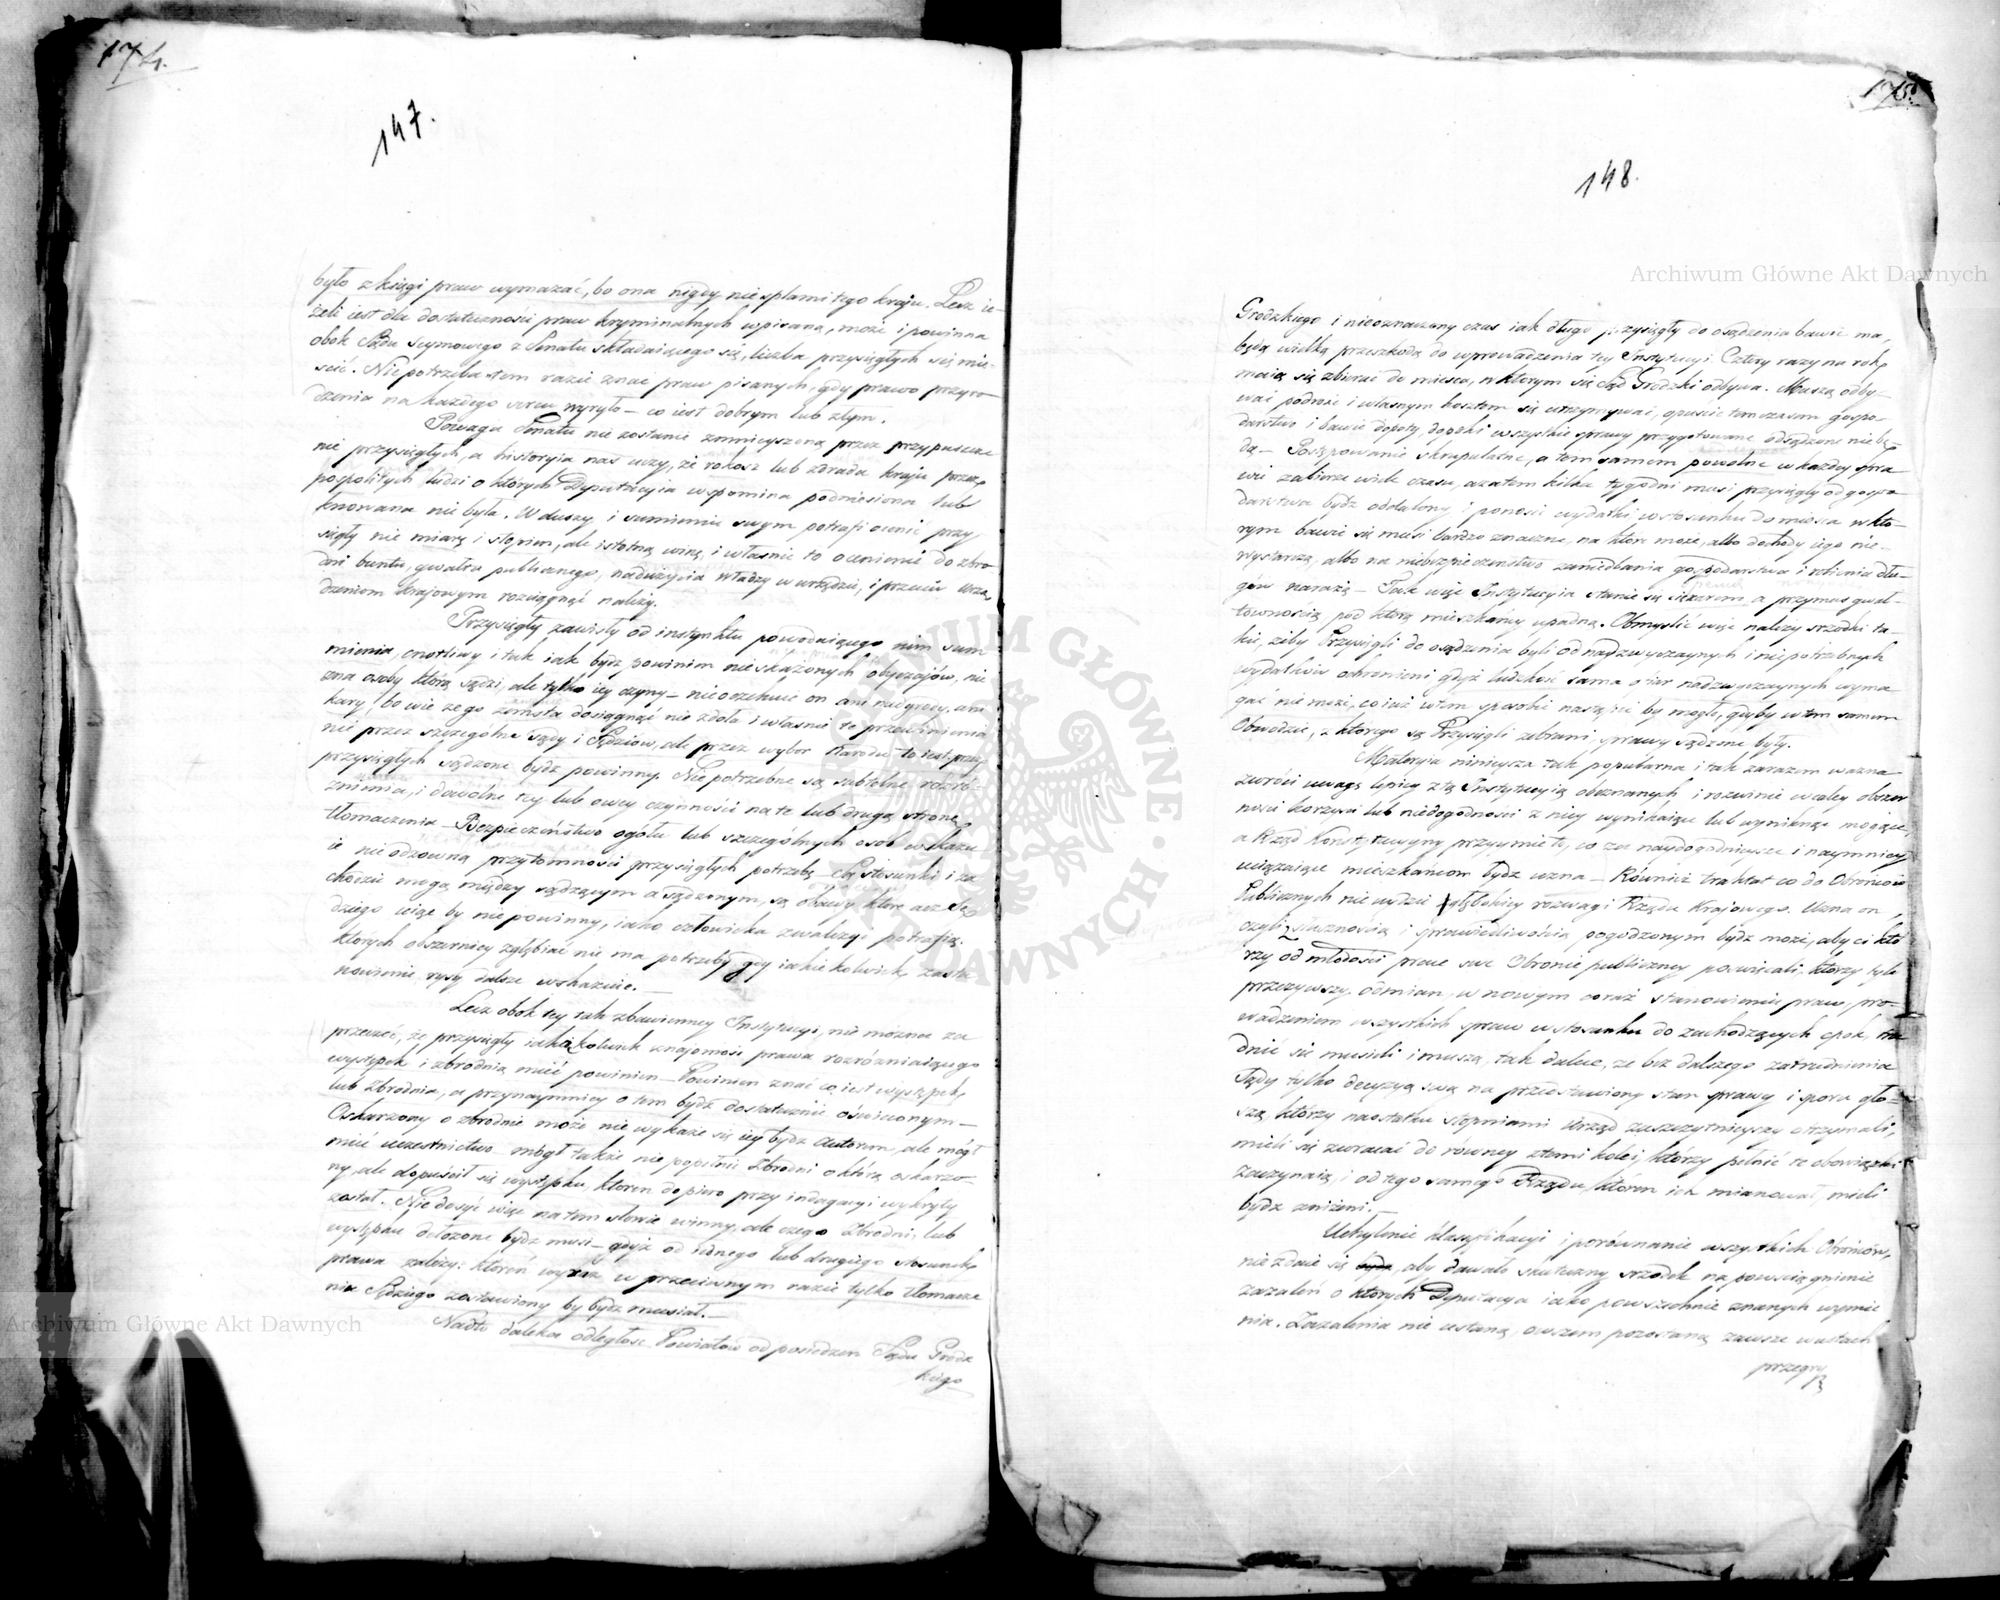 174.
147.
było z księgi praw wymazać, bo ona nigdy nie splami tego kraju. Lecz ie-
żeli iest dla dostateczności praw kryminalnych wpisana, może i powinna
obok Sądu Seymowego z Senatu składaiącego się, liczba przysięgłych się mie-
ścić. Nie potrzeba w tem razie znać praw pisanych, gdy prawo przyro-
dzenia na każdego sercu wyryło – co iest dobrym lub złym.
Powaga Senatu nie zostanie zmnieyszoną przez przypuszcze
nie przysięgłych, a historyia nas uczy, że rokosz lub zdrada kraju przez
pospolitych ludzi o których Deputacyia wspomina podniesiona lub
knowana nie była. W duszy i sumieniu swym potrafi ocenić przy
sięgły nie miarę i stopień, ale istotną winę, i właśnie to ocenienie do zbro
dni buntu, gwałtu publicznego, nadużycia władzy w urzędzie, i przeciw urzą
dzeniom krajowym rozciągnąć należy.
Przysięgły zawisły od instynktu powodaiącego nim sum
mienia, cnotliwy i tak iak bydź powinien nieskażonych obyczajów, nie
zna osoby którą sądzi, ale tylko iey czyny – nieoczekuie on ani nadgrody, ani
kary, bo wie że go zemsta dosięgnąć nie zdoła i właśnie te przewinienia
nie przez szczególne sądy i Sędziów, ale przez wybor Narodu to iest przez
przysięgłych sądzone bydź powinny. Nie potrzebne są subtelne rozró-
żnienia, i dowolne tey lub owey czynności na te lub drugą stronę
tłomaczenia – Bezpieczeństwo ogołu lub szczególnych osob wskazu
ie nieodzowną przytomności przysięgłych potrzebę. Czy stosunki i za
chodzić mogą między sądzącym a sądzonym, są obawy, które acz Sę
dziego ująć by nie powinny, iako człowieka zwalczyć potrafią.
których obszerniey zgłębiać nie ma potrzeby, gdy iakie kolwiek zasta
nowienie rysy dalsze wskazuie. –
Lecz obok tey tak zbawienney Instytucyi, nie można za
przeczeć, że przysięgły iakążkolwiek znajomość prawa rozróżniaiącego
występek i zbrodnią mieć powinien – Powinien znać co iest występek,
lub Zbrodnia, a przynaymniey o tem bydź dostatecznie oświeconym –
Oskarżony o zbrodnie może nie wykaże się iey bydź autorem, ale mógł
mieć uczestnictwo – mógł także nie popełnić Zbrodni o którą oskarżo-
ny, ale dopuścił się występku, któren dopiero przy indagacyi wykryty
został. Nie dosyć więc na tem słowie winny, ale czego Zbrodni, lub
występku dołożone bydź musi – gdyż od iednego lub drugiego stosunek
prawa zależy: któren wyraz w przeciwnym razie tylko tłomacze
niu Sędziego zostawiony by bydź musiał. –
Nadto daleka odległość Powiatów od posiedzen Sądu Grodz
kiego
175.
148.
Grodzkiego i nieoznaczony czas iak długo przysięgły do osądzenia bawić ma,
będą wielką przeszkodą do wprowadzenia tey Instytucyi. Cztery razy na rok
maią się zbierać do mieysca, w którym się Sąd Grodzki odbywa. Muszą odby-
wać podróż i własnym kosztem się utrzymywać, opuścić tem czasem gospo-
darstwo i bawić dopóty, dopóki wszystkie sprawy przygotowane odsądzone niebę-
dą – Postępowanie skrupulatne, a tem samem powolne w każdey spra
wie zabierze wiele czasu, a zatem kilka tygodni musi przysięgły od gospo
darstwa bydź oddalony, i ponosić wydatki w stosunku do mieysca w któ-
rym bawić się musi bardzo znaczne, na które może, albo dochody iego nie-
wystarczą, albo na niebezpieczeństwo zaniedbania gospodarstwa i robienia dłu-
gów narażą – Tak więc Instytucyia stanie się ciężarem a przymus gwał-
townością, pod którą mieszkańcy upadną. Obmyślić więc należy srzodki ta-
kie, żeby Przysięgli do osądzenia byli od nadzwyczaynych i niepotrzebnych
wydatków ochronieni gdyż ludzkość sama ofiar nadzwyczaynych wyma
gać nie może, co iuż w tem sposobie nastąpić by mogło, gdyby w tem samem
Obwodzie, z którego są Przysięgli zebrani sprawy sądzone były.
Materyia ninieysza tak popularna i tak zarazem ważna
zwróci uwagę lepiey z tą Instytucyią obeznanych i rozwinie w całey obszer
ności korzyści lub niedogodności z niey wynikaiące lub wyniknąć mogące,
a Rząd Konstytucyyny przyymie to, co za naydogodnieysze i naymniey
uciążaiące mieszkańcom bydź uzna – Również traktat co do Obrońców
Publicznych nie uydzie głębokiey rozwagi Rządu Krajowego. Uzna on,
czyli z słusznością i sprawiedliwością pogodzonym bydź może, aby ci któ
rzy od młodości prace swe Obronie publiczney poświęcali, którzy tyle
przeżywszy odmian, w nowym coraz stanowieniu praw, pro-
wadzeniem wszystkich spraw w stosunku do zachodzących epok, tru
dnić się musieli i muszą, tak dalece, że bez dalszego zatrudnienia
Sądy tylko decyzyą swą na przedstawiony stan sprawy i sporu gło-
szą, którzy naostatku stopniami Urząd zaszczytnieyszy otrzymali,
mieli się zwracać do równey z temi kolei, którzy pełnić te obowiązki
zaczynaią, i od tego samego Rządu, któren ich mianował, mieli
bydź zniżeni. –
Uchylenie klassyfikacyi i porównanie wszystkich Obrońców,
nie zdaie się, aby dawało skuteczny srzodek na powsciągnienie
zażaleń o których Deputacya iako powszechnie znanych wzmie
nia. Zażalenia nie ustaną, owszem pozostaną zawsze w ustach
przegry
Archiwum Główne Akt Dawnych
Archiwum Główne Akt Dawnych
ARCHIWUM GŁÓWNE AKT DAWNYCH